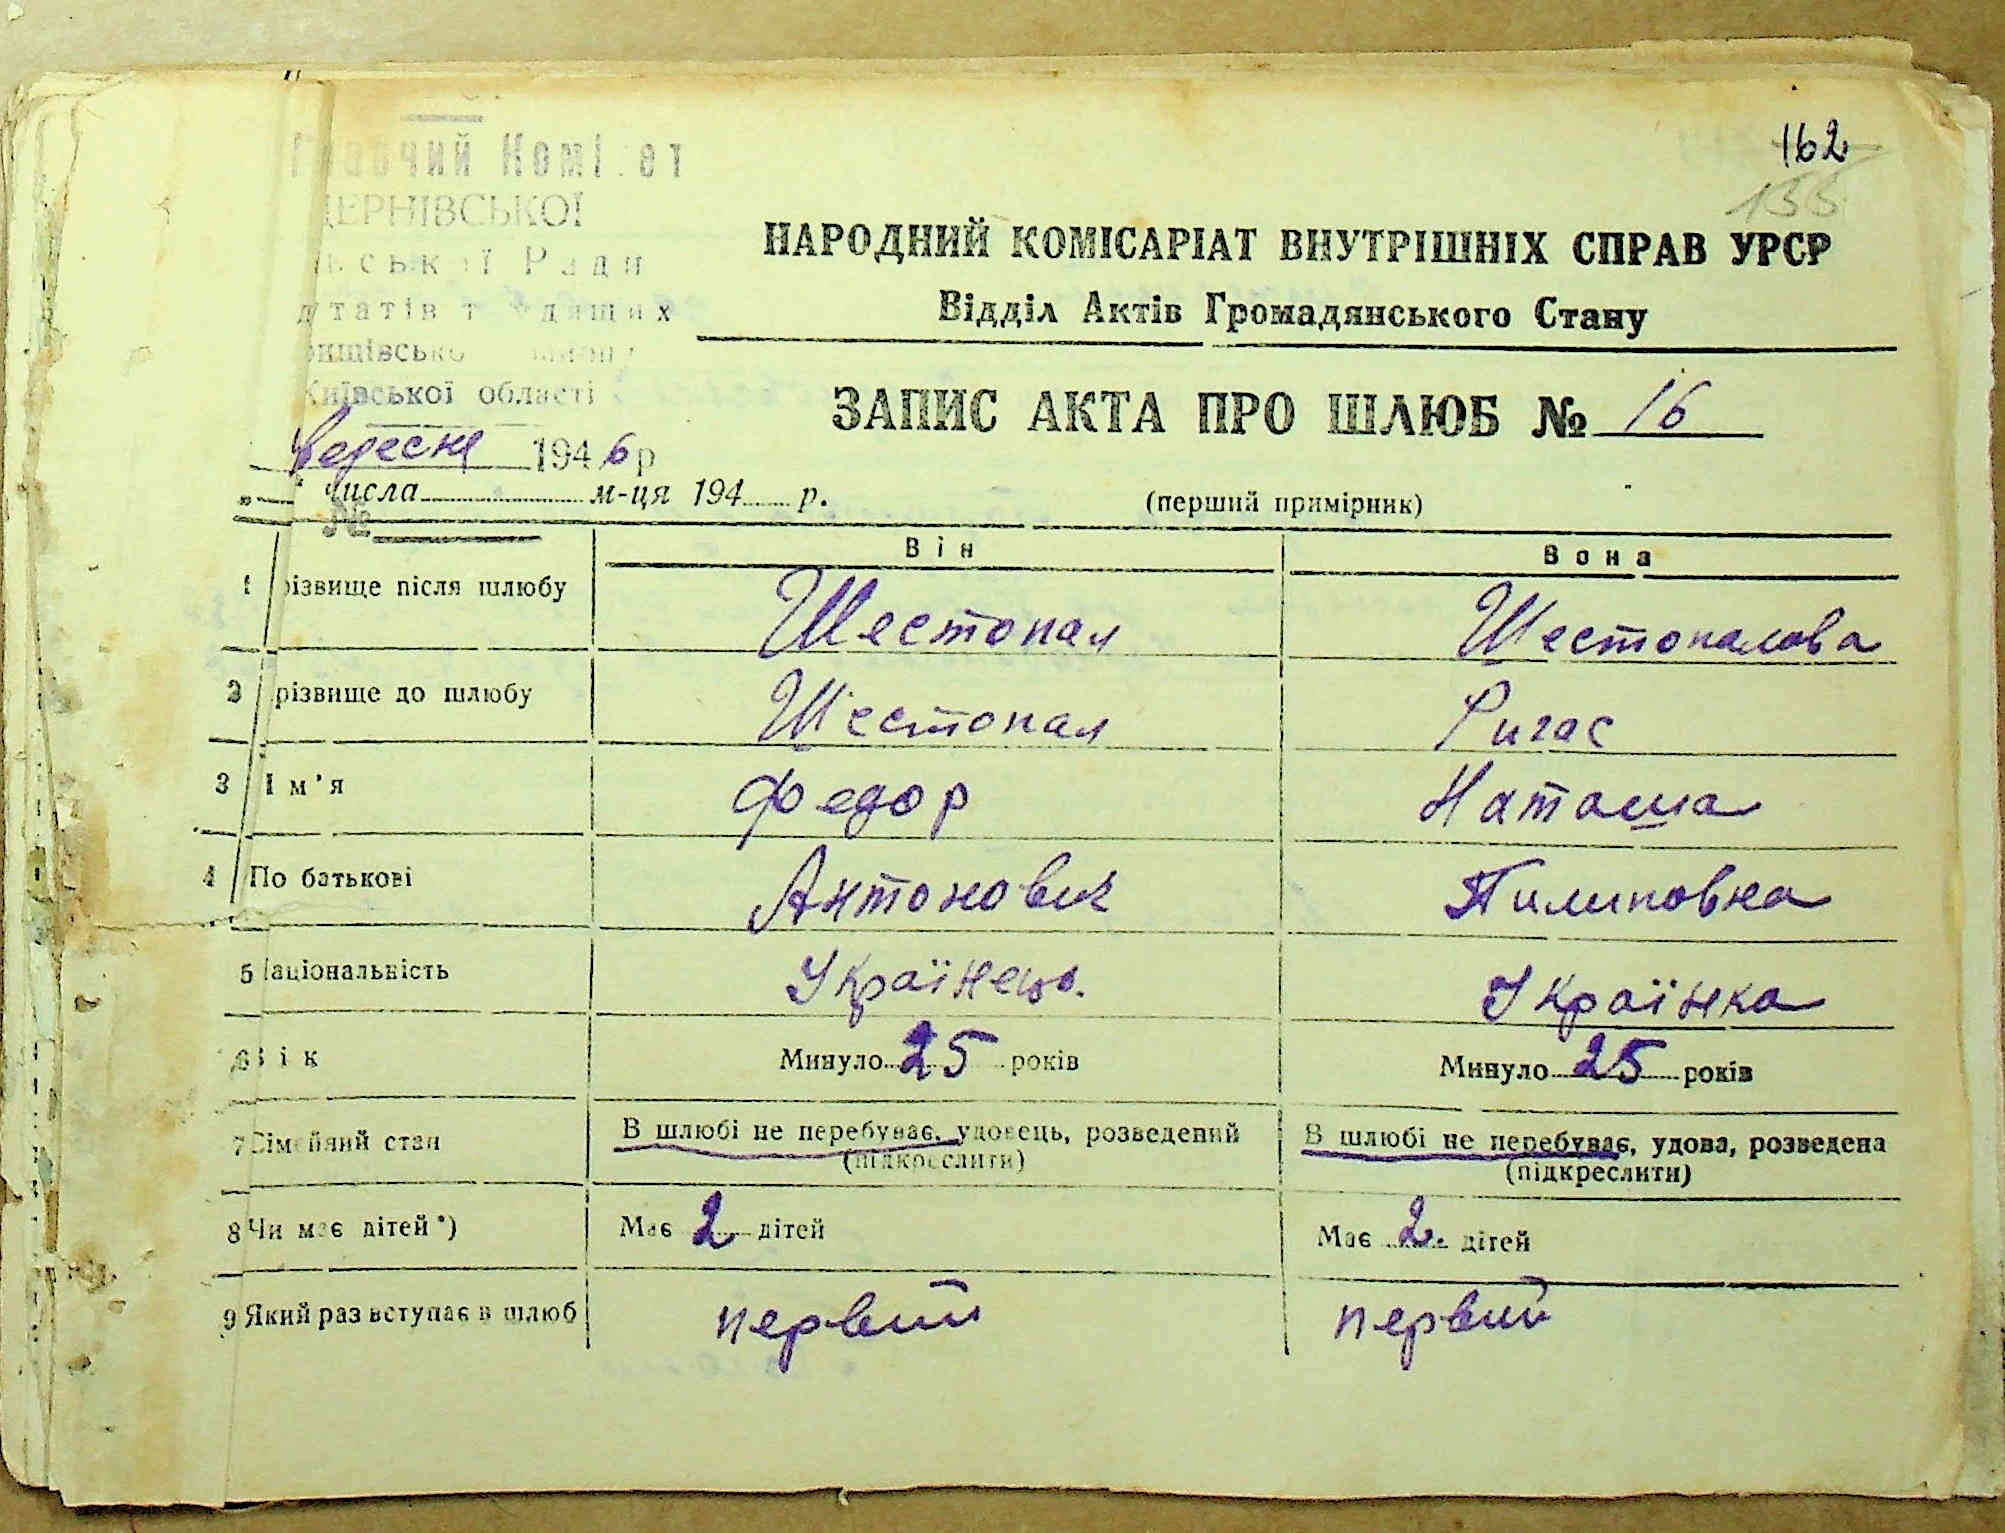 162
155
ДЕРНІВСЬКОЇ
Ради
Київської області
НАРОДНИЙ КОМІСАРІАТ ВНУТРІШНІХ СПРАВ УРСР
Відділ Актів Громадянського Стану
ЗАПИС АКТА ПРО ШЛЮБ № 16
вересня 1946 р
„ числа м-ця 194 р.
(перший примірник)
№
Він Вона
1 різвище після шлюбу Шестопал Шестопалова
2 різвище до шлюбу Шестопал Ригас
3 Ім'я Федор Наташа
4 По батькові Антонович Пилиповна
5 Національність Українець. Українка
6 Вік Минуло 25 років Минуло 25 років
7 Сімейний стан В шлюбі не перебуває, удовець, розведений В шлюбі не перебуває, удова, розведена
(підкреслити) (підкреслити)
8 Чи має дітей*) Має 2 дітей Має 2. дітей
9 Який раз вступає в шлюб первий первий